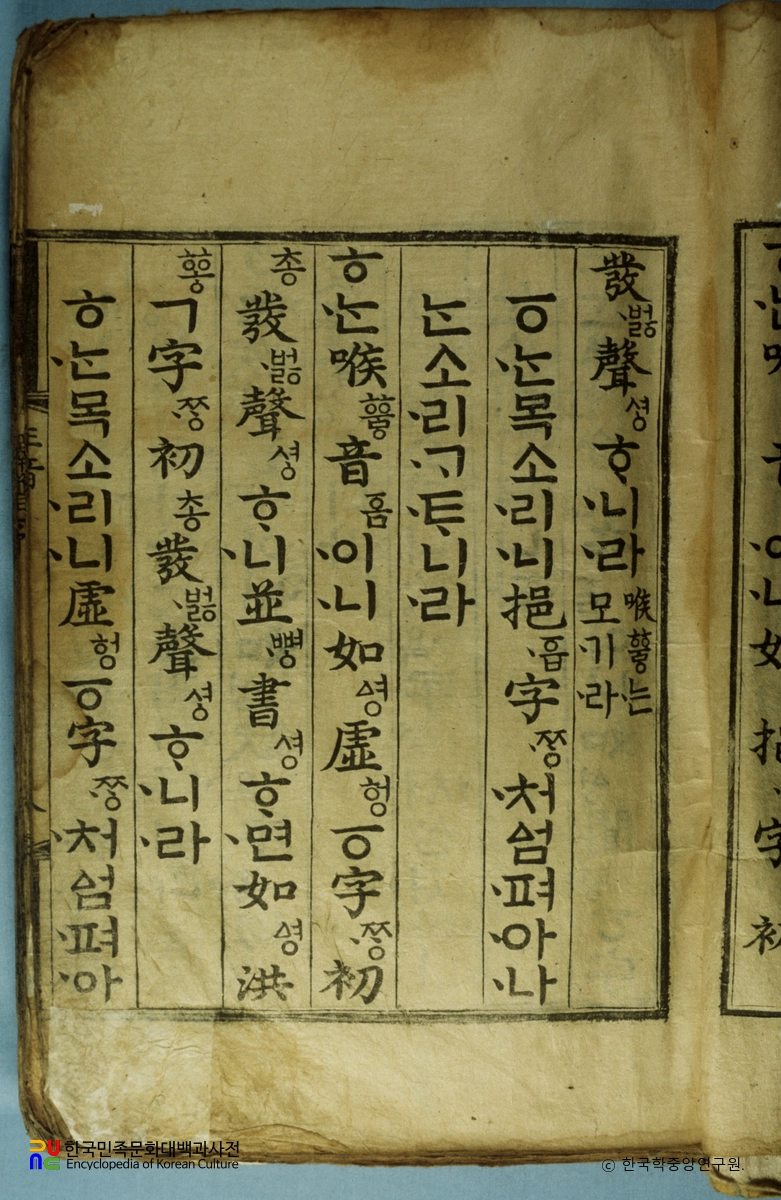 發벓〮聲셩ᄒᆞ니〮라〮喉ᅘᅮᇢ는〮모기〮라〮
ㆆᄂᆞᆫ〮목소리〮니〮挹ᅙᅳᆸ〮字ᄍᆞᆼ〮처〮ᅀᅥᆷ펴〮아〮나〮
ᄂᆞᆫ소리〮ᄀᆞ〮ᄐᆞ니〮라〮
ㅎᄂᆞᆫ〮喉ᅘᅮᇢ音ᅙᅳᆷ이〮니〮如ᅀᅧᆼ虛헝ㆆ字ᄍᆞᆼ〮初
총發벓〮聲셩ᄒᆞ니〮並뼝〮書셩ᄒᆞ면〮如ᅀᅧᆼ洪
ᅘᅩᆼㄱ字ᄍᆞᆼ〮初총發벓〮聲셩ᄒᆞ니〮라〮
ㅎᄂᆞᆫ〮목소리〮니〮虛헝ㆆ字ᄍᆞᆼ〮처〮ᅀᅥᆷ펴〮아〮
한국민족문화대백과사전
Encyclopedia of Korean Culture
© 한국학중앙연구원.